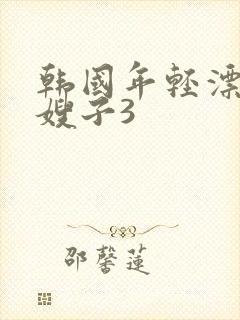 韩國年轻漂
嫂子3
邵馨莲